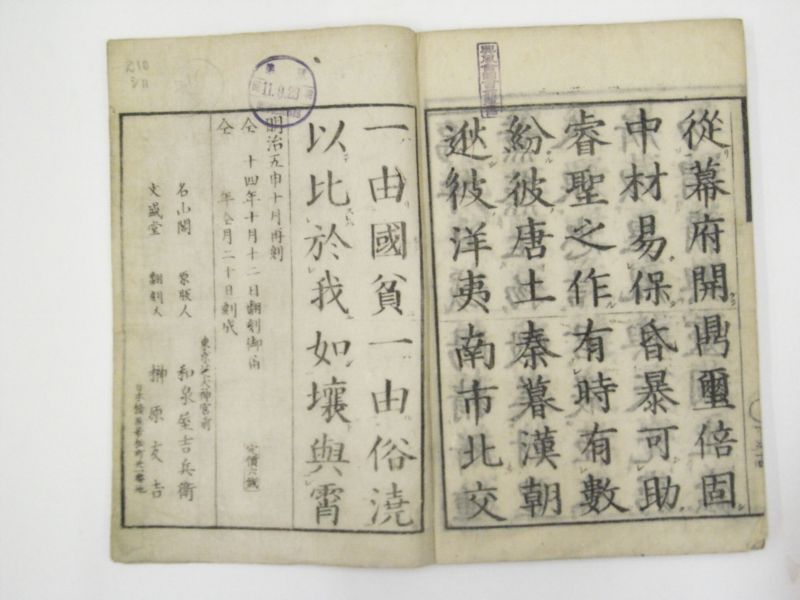 從幕府開鼎璽倍固
中材易保昏暴可助
睿聖之作有時有數
紛彼唐土秦暮漢朝
逖彼洋夷南市北交
一由國貧一由俗澆
以比於我如壤與霄
明治五申十月再刻
仝 十四年十月十二日翻刻御届
定價六錢
仝 年仝月二十日刻成
東京芝大神宮前
名山閣 原版人 和泉屋吉兵衛
文盛堂 翻刻人 榊原友吉
11.9.23